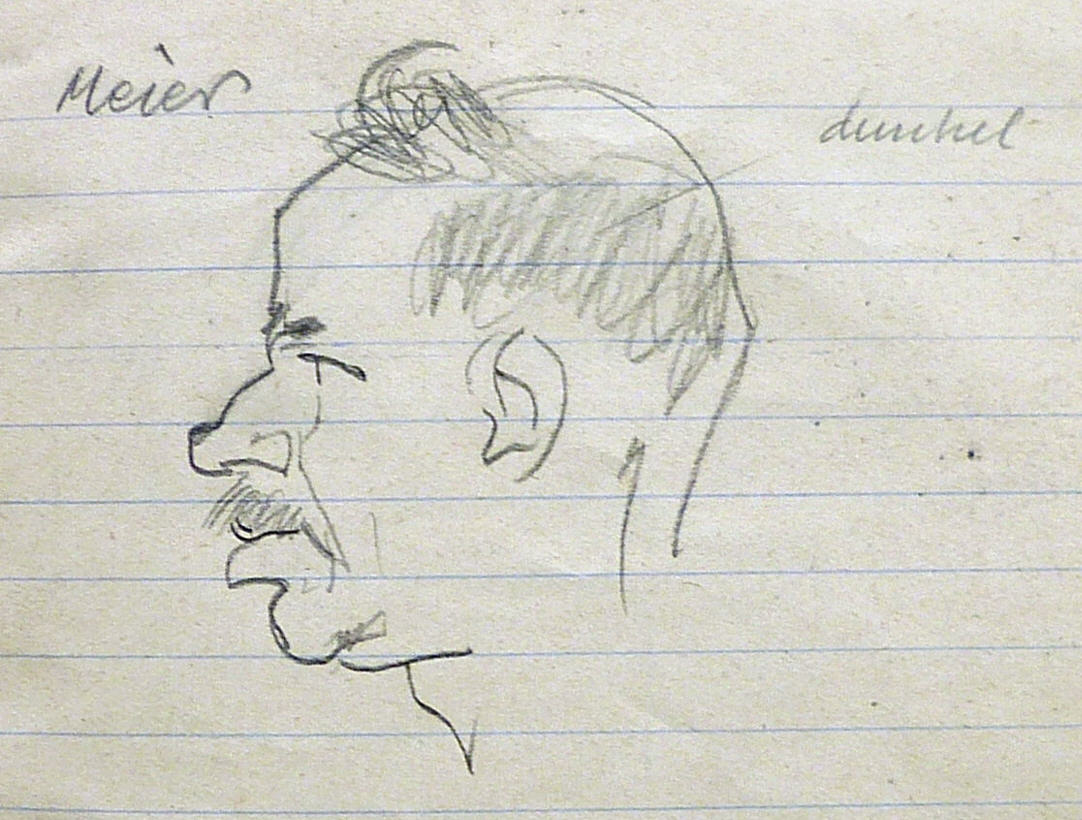 Meier
dunkel